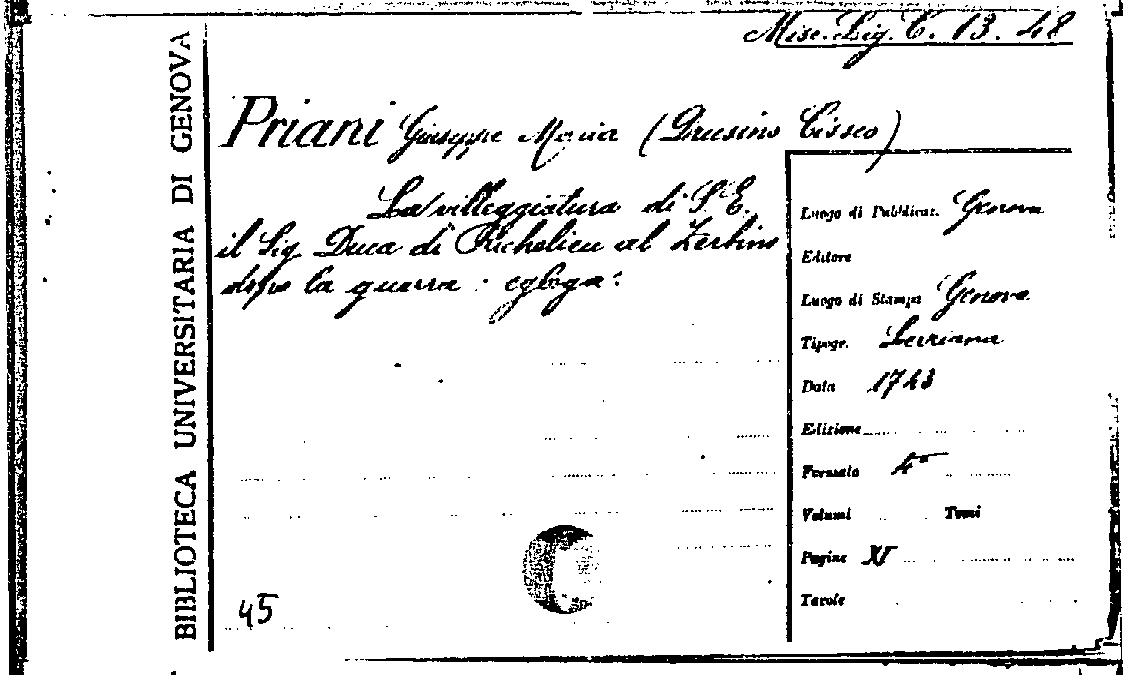 Misc. Lig. C. 13. 48
BIBLIOTECA UNIVERSITARIA DI GENOVA
Priani Giuseppe Maria (Drusino Cisseo)
La villeggiatura di S. E.
il Sig. Duca di Richelieu al Zerbino
dopo la guerra. egloga.
Luogo di Pubblicaz. Genova
Editore
Luogo di Stampa Genova
Tipogr. Lerziana
Data 1748
Edizione
Formato 4°
Volumi Tomi
Pagine XV
Tavole
45